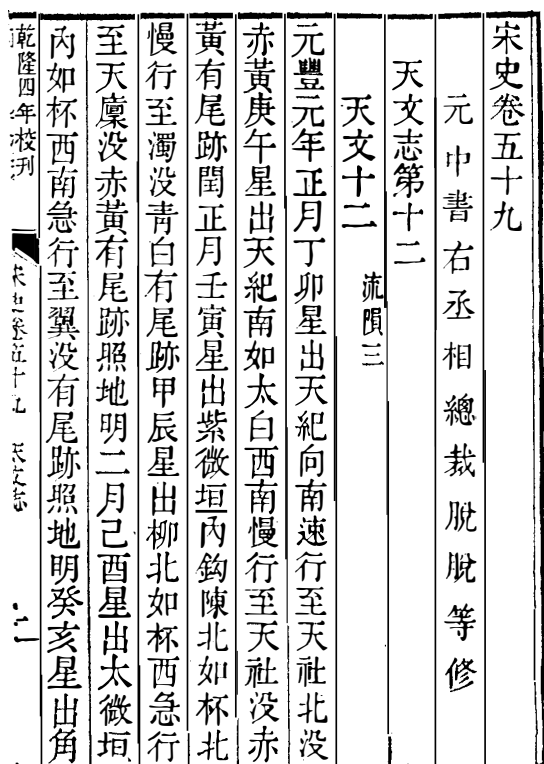 宋史卷五十九
元中書右丞相總裁脫脫等修
天文志第十二
天文十二　流隕三
元豐元年正月丁卯星出天紀向南速行至天社北沒
赤黃庚午星出天紀南如太白西南慢行至天社没赤
黃有尾跡閏正月壬寅星出紫微垣內鈎陳北如杯北
慢行至濁没青白有尾跡甲辰星出柳北如杯西急行
至天廩没赤黃有尾跡照地明二月己酉星出太微垣
內如杯西南急行至翼没有尾跡照地明癸亥星出角
乾隆四年校刊
宋史卷五十九　天文志